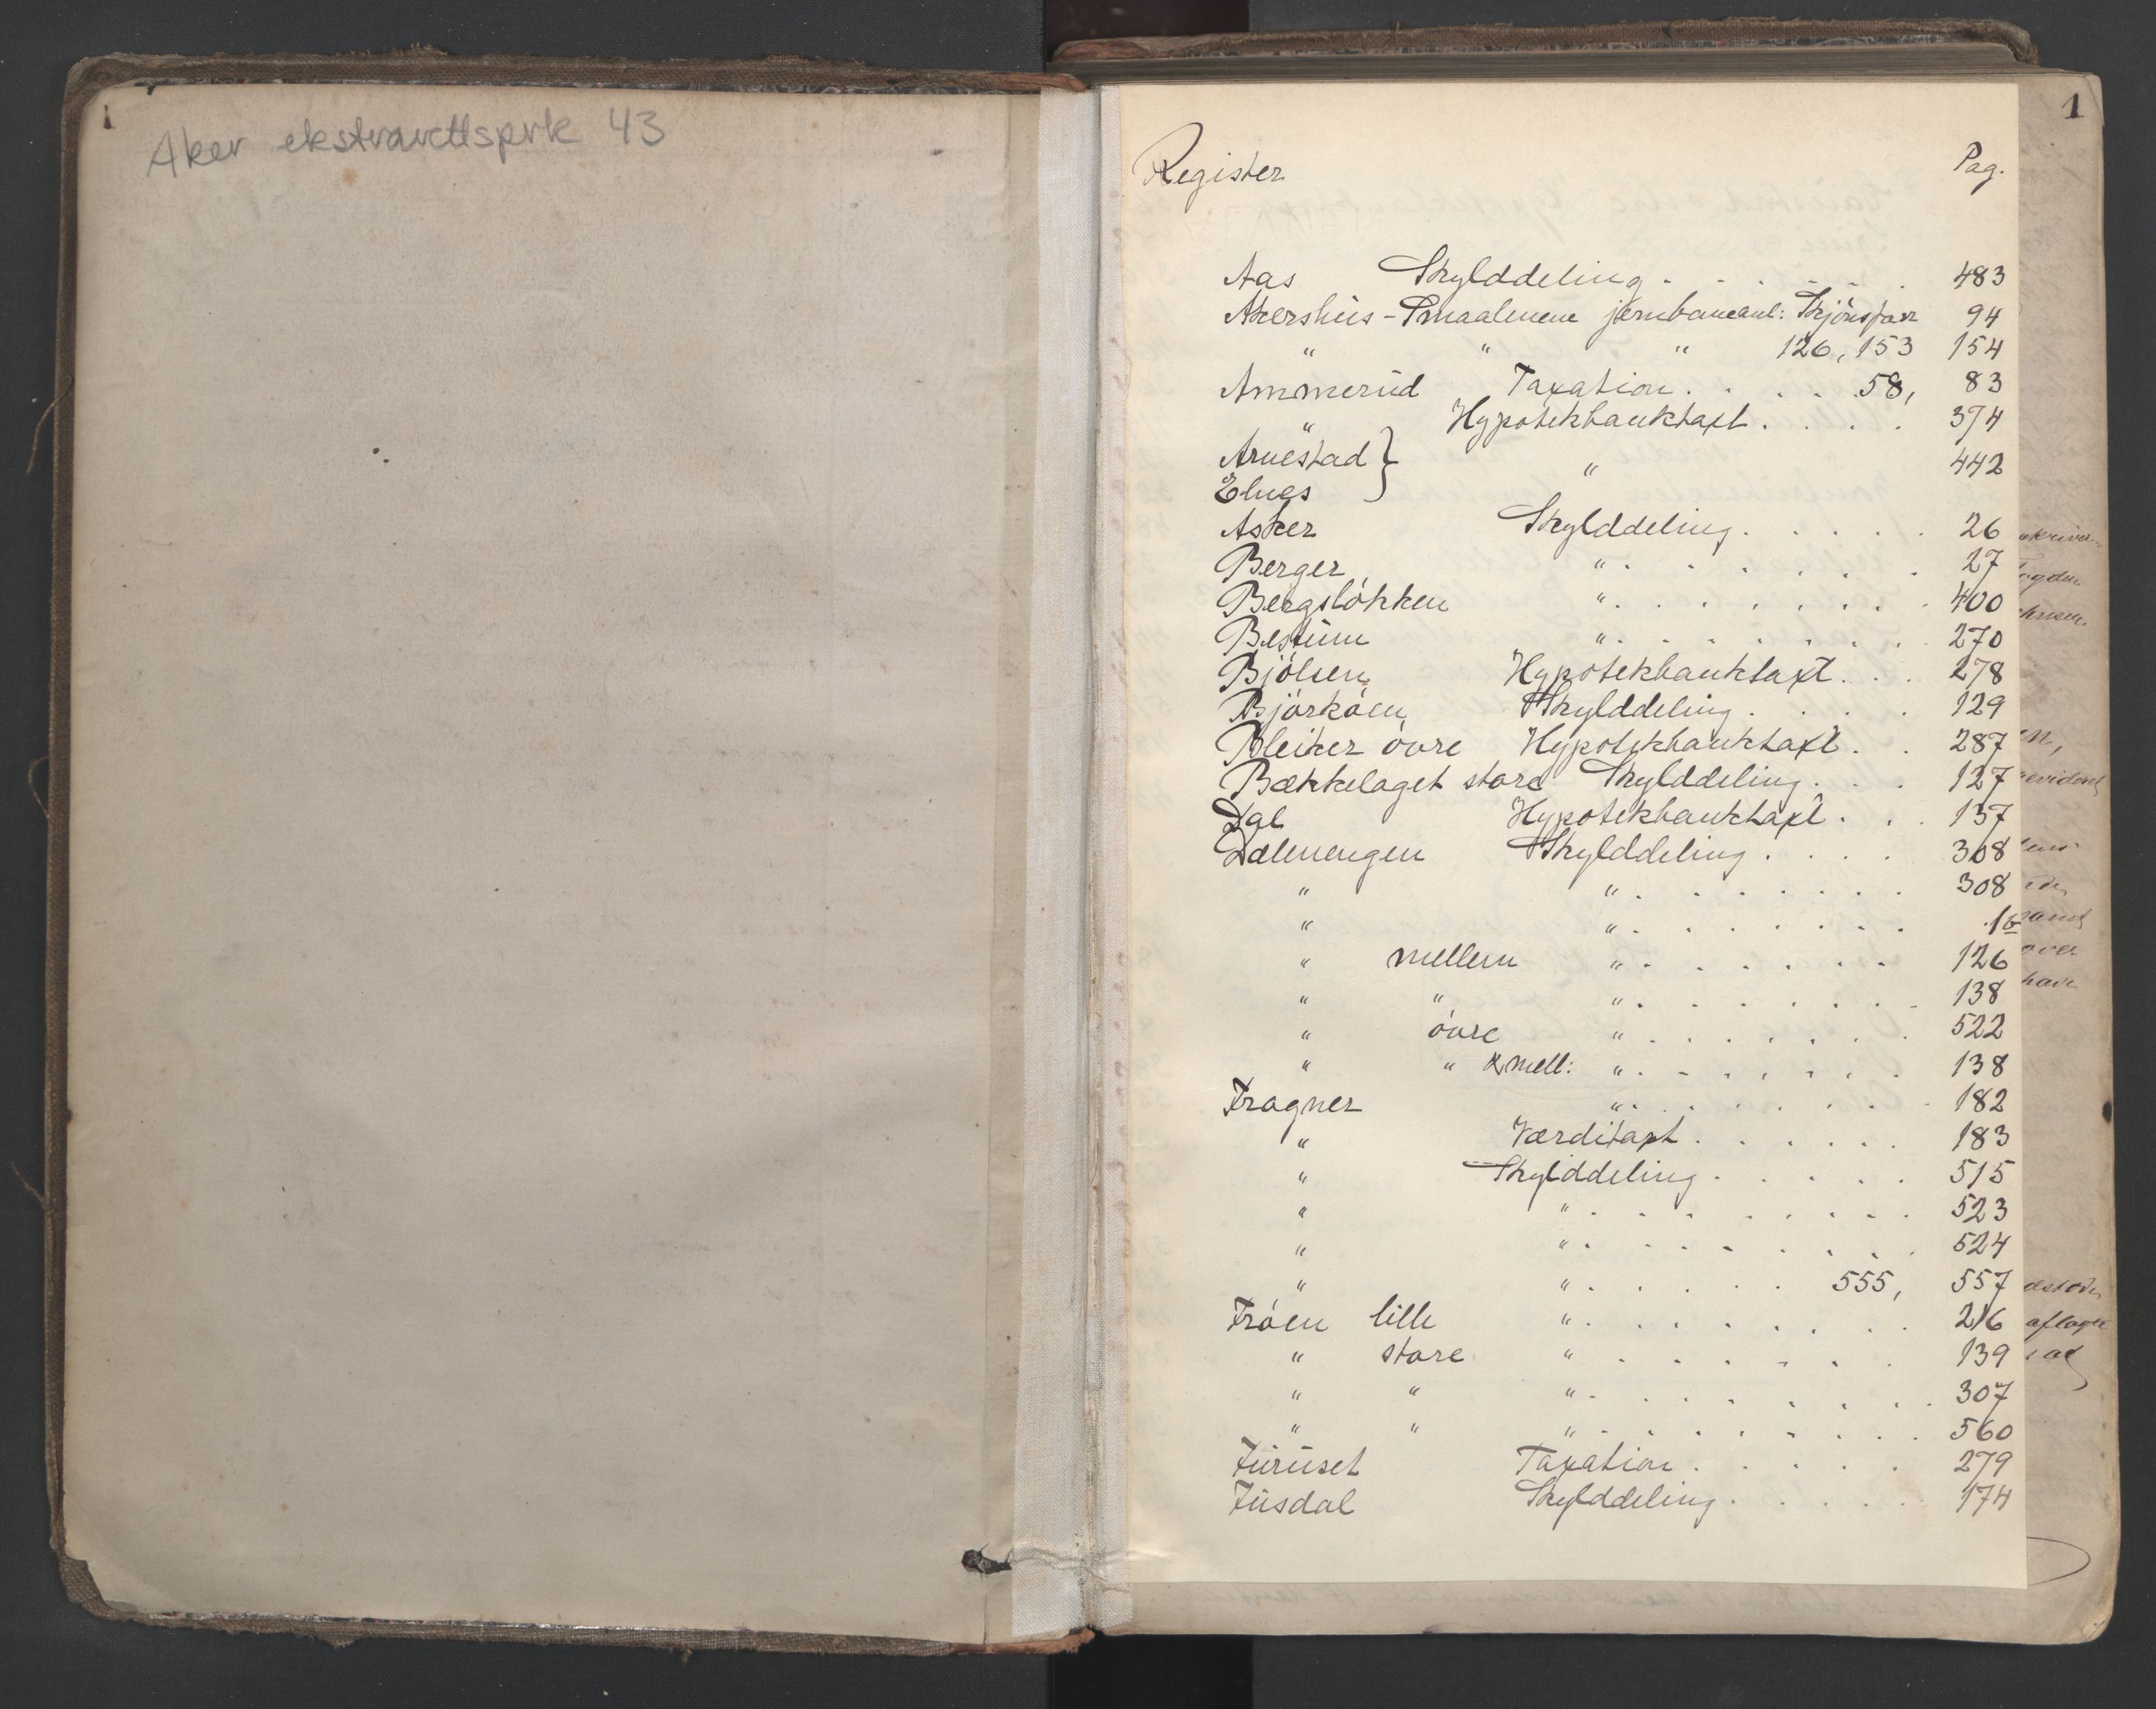 Aker ekstrarettsprk 43
1
Register Pag.
Aas Skylddeling . . . . . . 483
Akershus-Smaalenene jernbaneanl: Skjönsforr 94
" " " 126, 153 154
Ammerud Taxation . . . . 58, 83
" Hypotekbanktaxt . . . . 374
Arnestad } " 442
Elnes
Asker Skylddeling . . . . . 26
Berger " . . . . . . . 27
Bergslökken " . . . . . . . 400
Bestum " . . . . . . . 270
Bjölsen Hypotekbanktaxt . . . 278
Björköen Skylddeling . . . . 129
Bleiker övre Hypotekbanktaxt . . 287
Bækkelaget store Skylddeling . . . 127
Dal Hypotekbanktaxt . . . 137
Dælenengen Skylddeling . . . . 308
" " . . . . . . . 308
" " . . . . . . .
" mellem " . . . . . . 126
" " " . . . . . . . 138
" övre " . . . . . . . 522
" " & mell: " . . . . . . . 138
Frogner " . . . . . . . 182
" Værditaxt . . . . . . 183
" Skylddeling . . . . . 515
" " . . . . . . . . 523
" " . . . . . . . . 524
" " . . . . . 555, 557
Fröen lille " . . . . . . . . 216
" store " . . . . . . . 139
" " " . . . . . . . . 307
" " " . . . . . . . . 560
Furuset Taxation . . . . . 279
Fusdal Skylddeling . . . . . 174
over
have